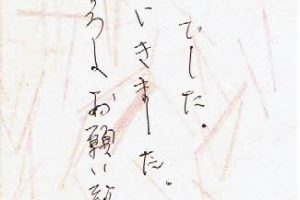 でした。
いきました。
ろしくお願い致